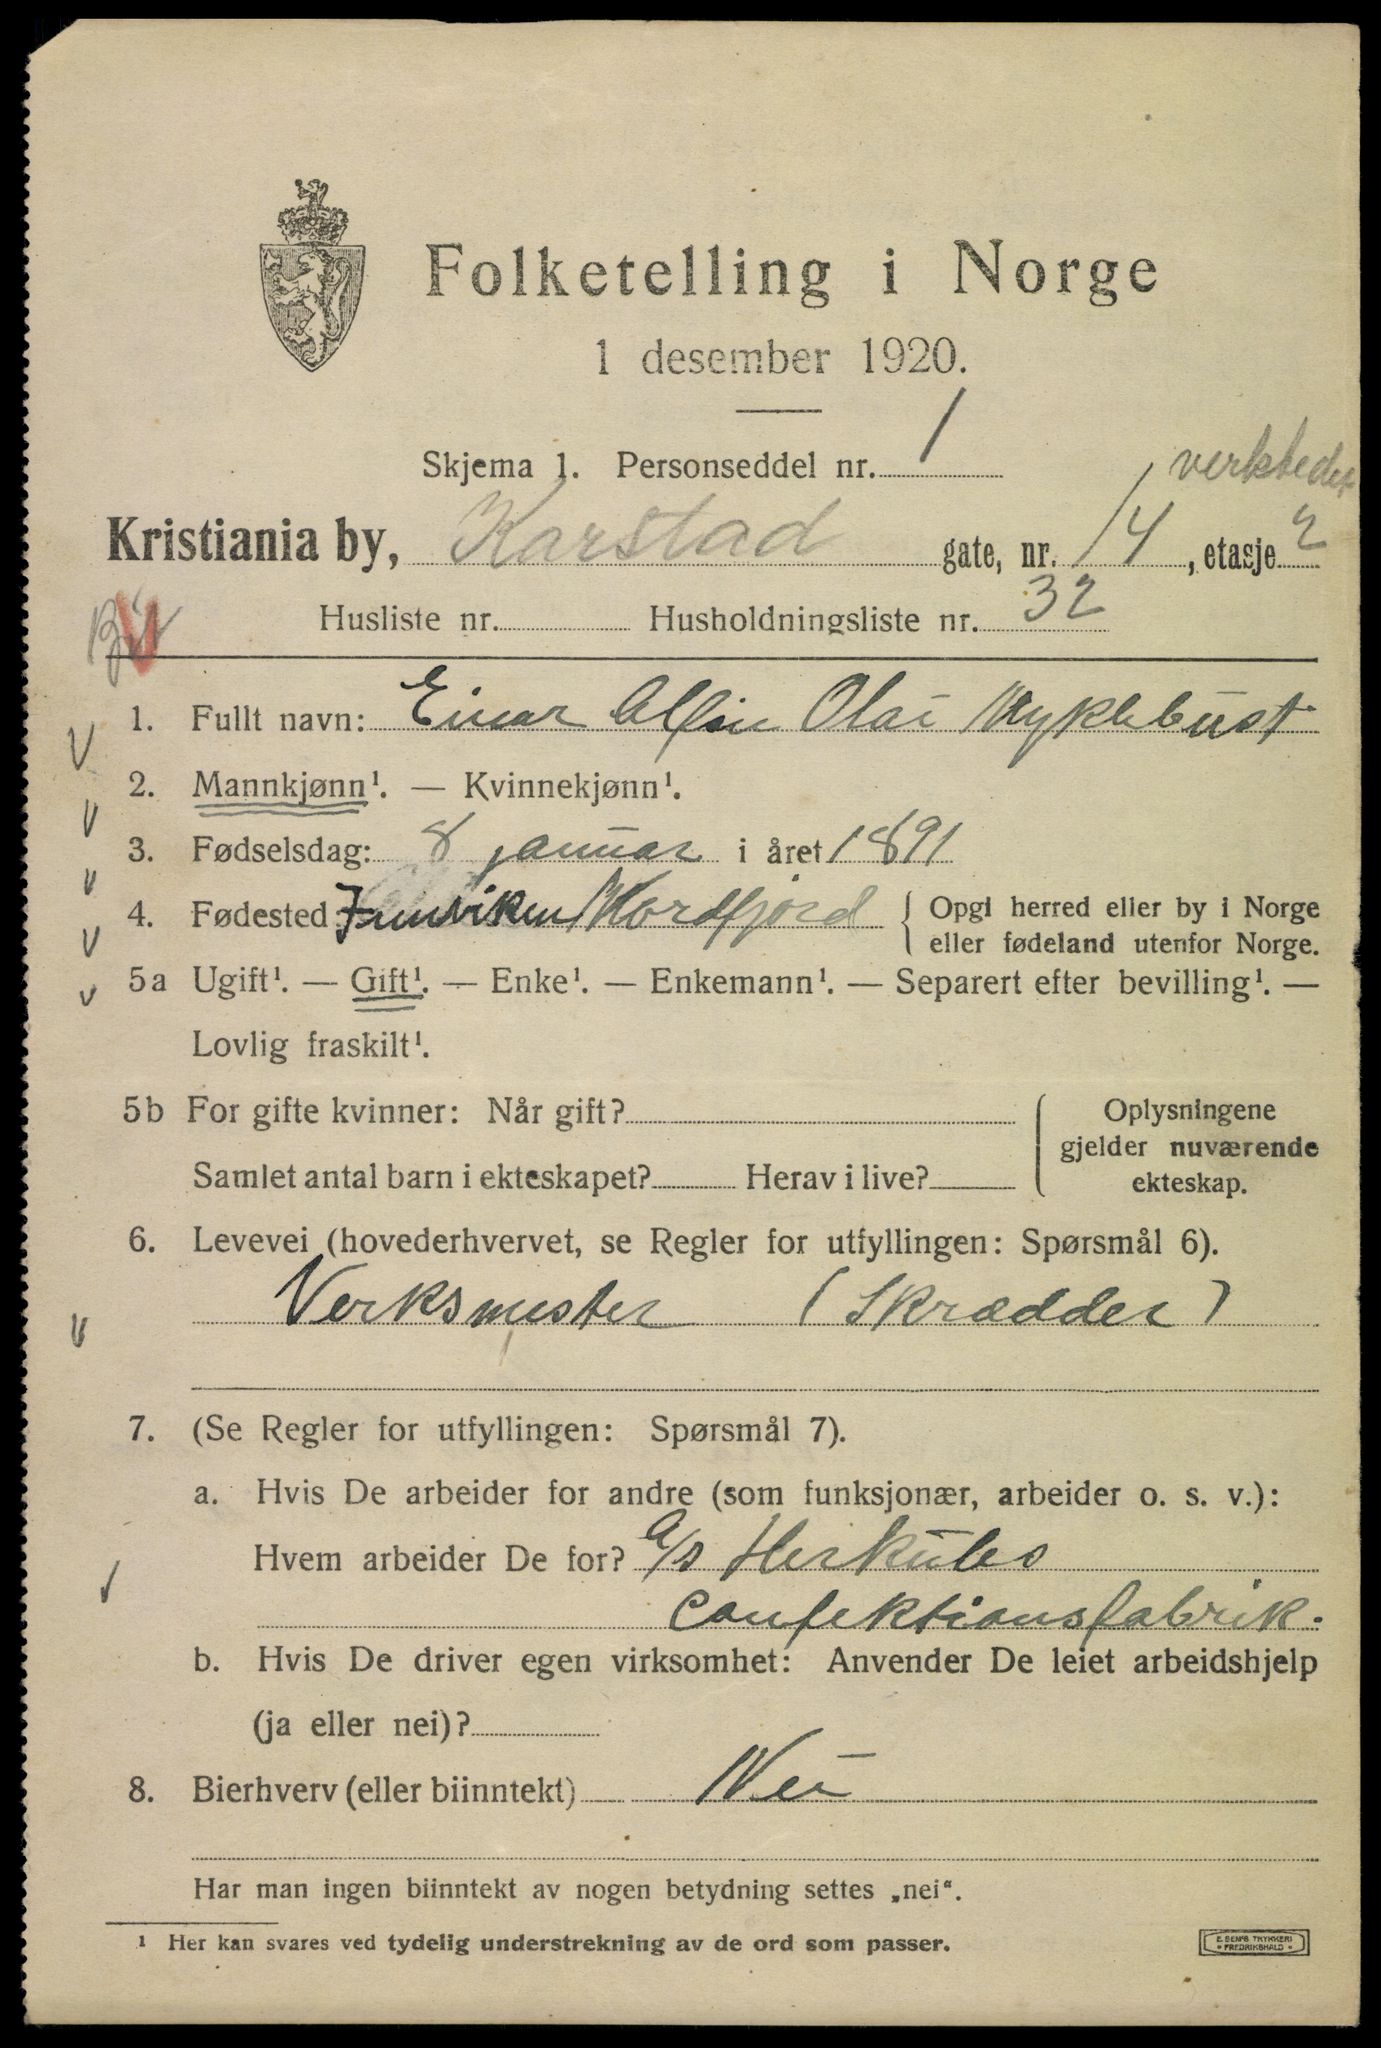 Folketelling i Norge
1 desember 1920.
Skjema 1. Personseddel nr. 1
verksteder
Kristiania by, Karstad gate, nr. 14, etasje 2
Husliste nr. Husholdningsliste nr. 32
1. Fullt navn: Einar Olai Myklebust
2. Mannkjønn¹. — Kvinnekjønn¹.
3. Fødselsdag: 8 januar i året 1891
4. Fødested Nordfjord { Opgi herred eller by i Norge
eller fødeland utenfor Norge.
5a Ugift¹. — Gift¹. — Enke¹. — Enkemann¹. — Separert efter bevilling¹. —
Lovlig fraskilt¹.
5b For gifte kvinner: Når gift? { Oplysningene
gjelder nuværende
Samlet antal barn i ekteskapet? Herav i live? ekteskap.
6. Levevei (hovederhvervet, se Regler for utfyllingen: Spørsmål 6).
Verksmester (Skrædder)
7. (Se Regler for utfyllingen: Spørsmål 7).
a. Hvis De arbeider for andre (som funksjonær, arbeider o. s. v.):
Hvem arbeider De for? a/s Herkules
Confektionsfabrik.
b. Hvis De driver egen virksomhet: Anvender De leiet arbeidshjelp
(ja eller nei)?
8. Bierhverv (eller biinntekt) Nei
Har man ingen biinntekt av nogen betydning settes „nei“.
¹ Her kan svares ved tydelig understrekning av de ord som passer.
E. SEM'S TRYKKERI
• FREDRIKSHALD •